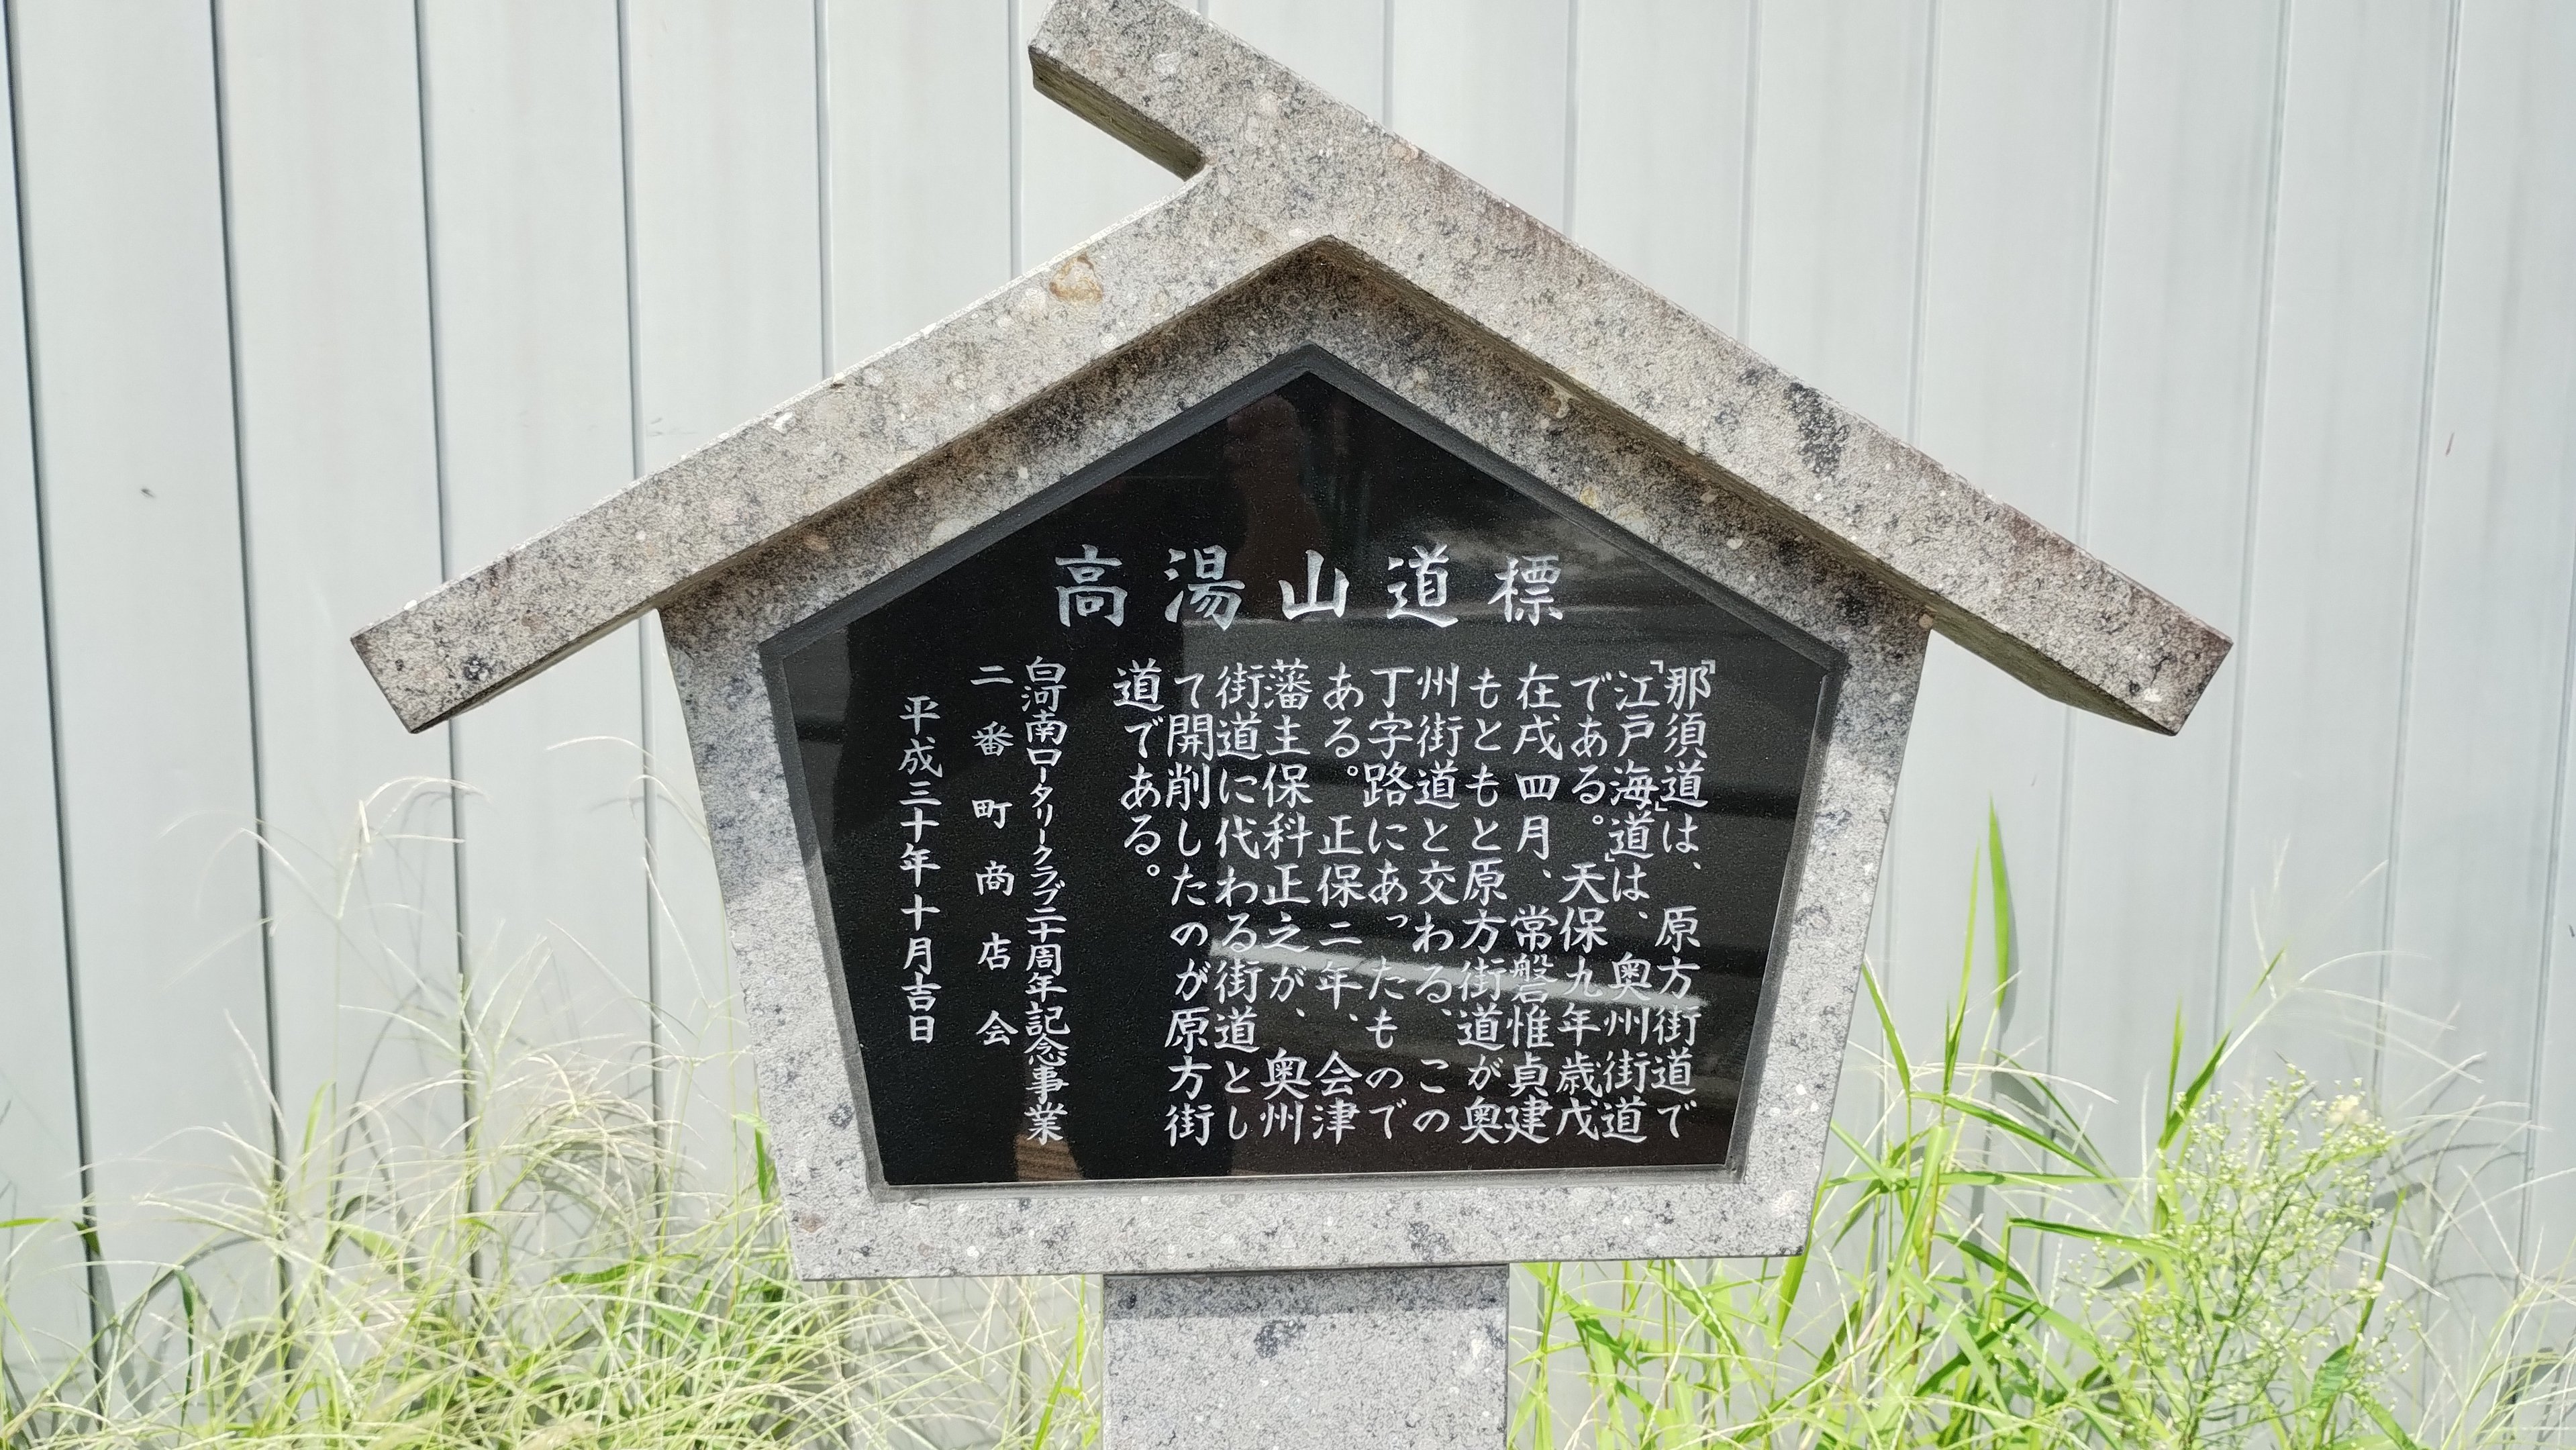 高湯山道標
「那須道」は、原方街道で
「江戸海道」は、奥州街道
である。天保九年歳戊
在戌四月、常磐惟貞建
もともと原方街道が奥
州街道と交わる、この
丁字路にあったもので
ある。正保二年、会津
藩主保科正之が、奥州
街道に代わる街道とし
て開削したのが原方街
道である。
白河南ロータリークラブ二十周年記念事業
二番町商店会
平成三十年十月吉日